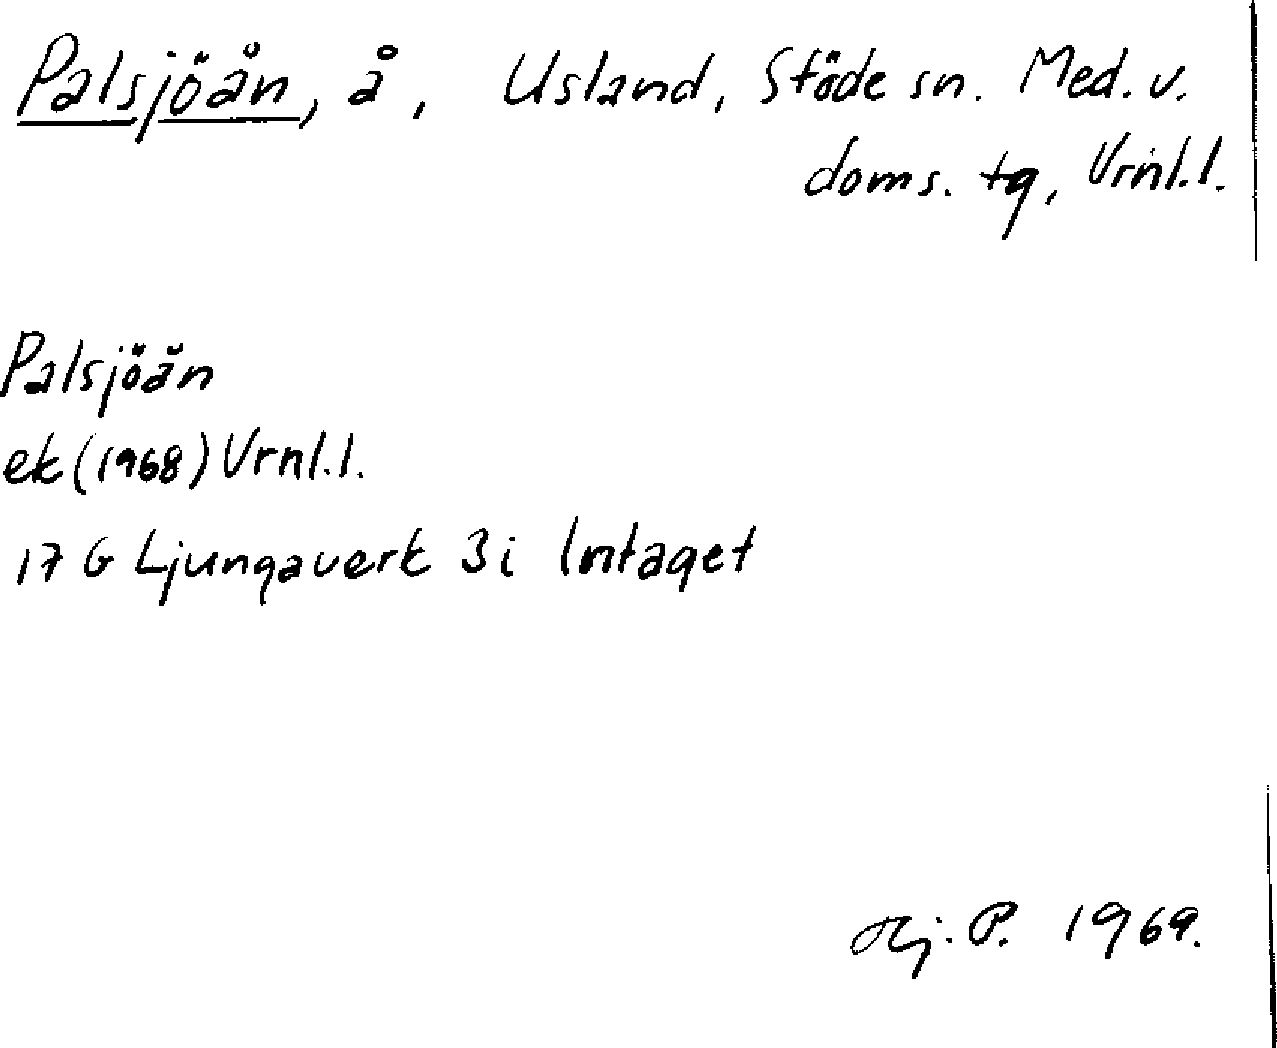 Palsjöån, å, Usland, Stöde sn. Med. v.
doms. tg, Vrnl.l.
Palsjöån
ek (1968) Vrnl.l.
17 G Ljungaverk 3i Intaget
Hj. P. 1969.